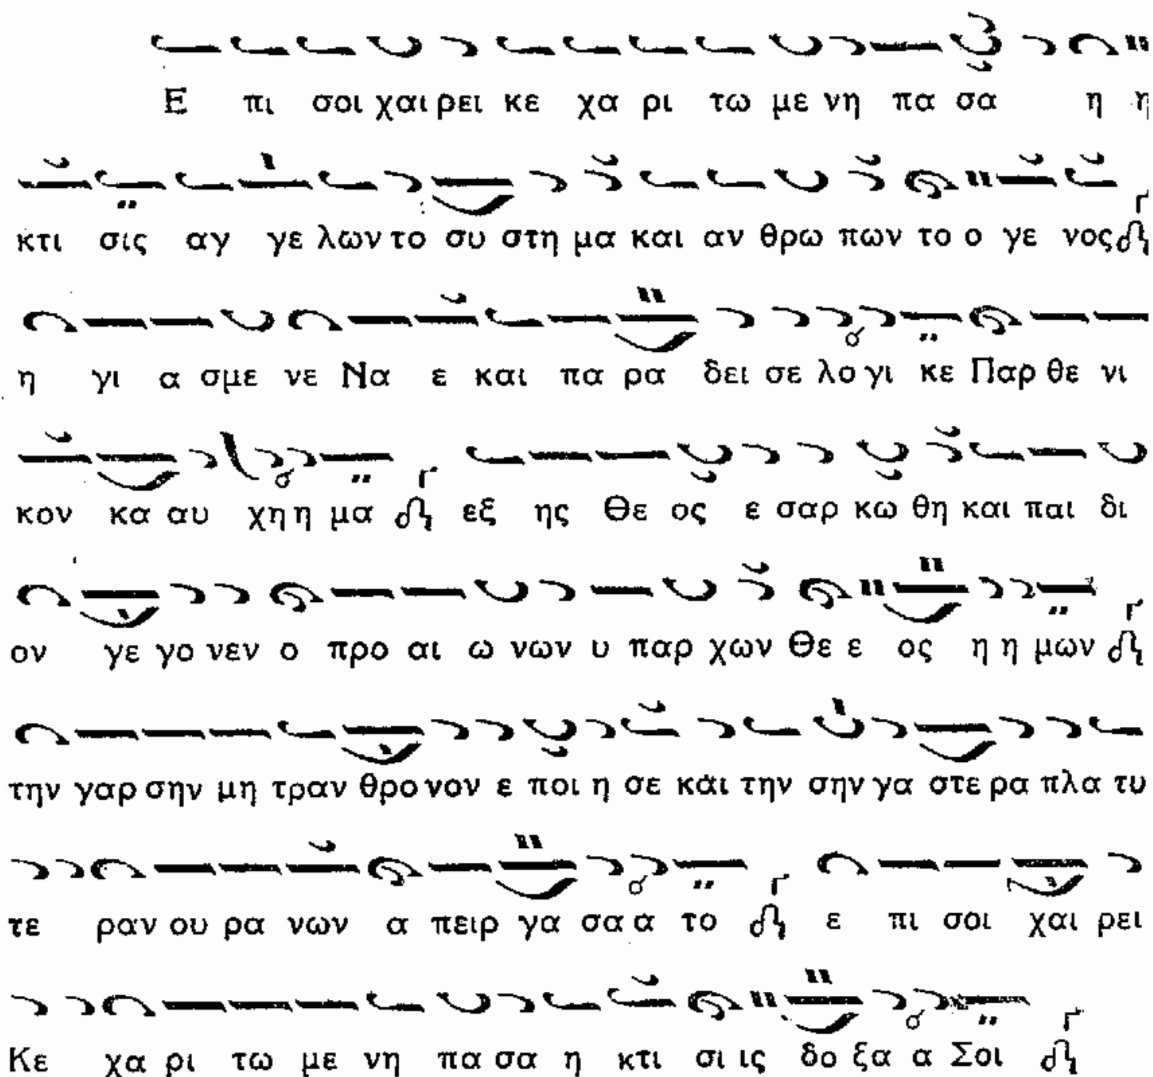 Ε πι σοι χαι ρει κε χα ρι τω με νη πα σα η η
κτι σις αγ γε λων το συ στη μα και αν θρω πων το ο γε νος
η γι α σμε νε Να ε και πα ρα δει σε λο γι κε Παρ θε νι
κον κα αυ χη η μα εξ ης Θε ος ε σαρ κω θη και παι δι
ον γε γο νεν ο προ αι ω νων υ παρ χων Θε ε ος η η μων
την γαρ σην μη τραν θρο νον ε ποι η σε και την σην γα στε ρα πλα τυ
τε ραν ου ρα νων α πειρ γα σα α το ε πι σοι χαι ρει
Κε χα ρι τω με νη πα σα η κτι σι ις δο ξα α Σοι